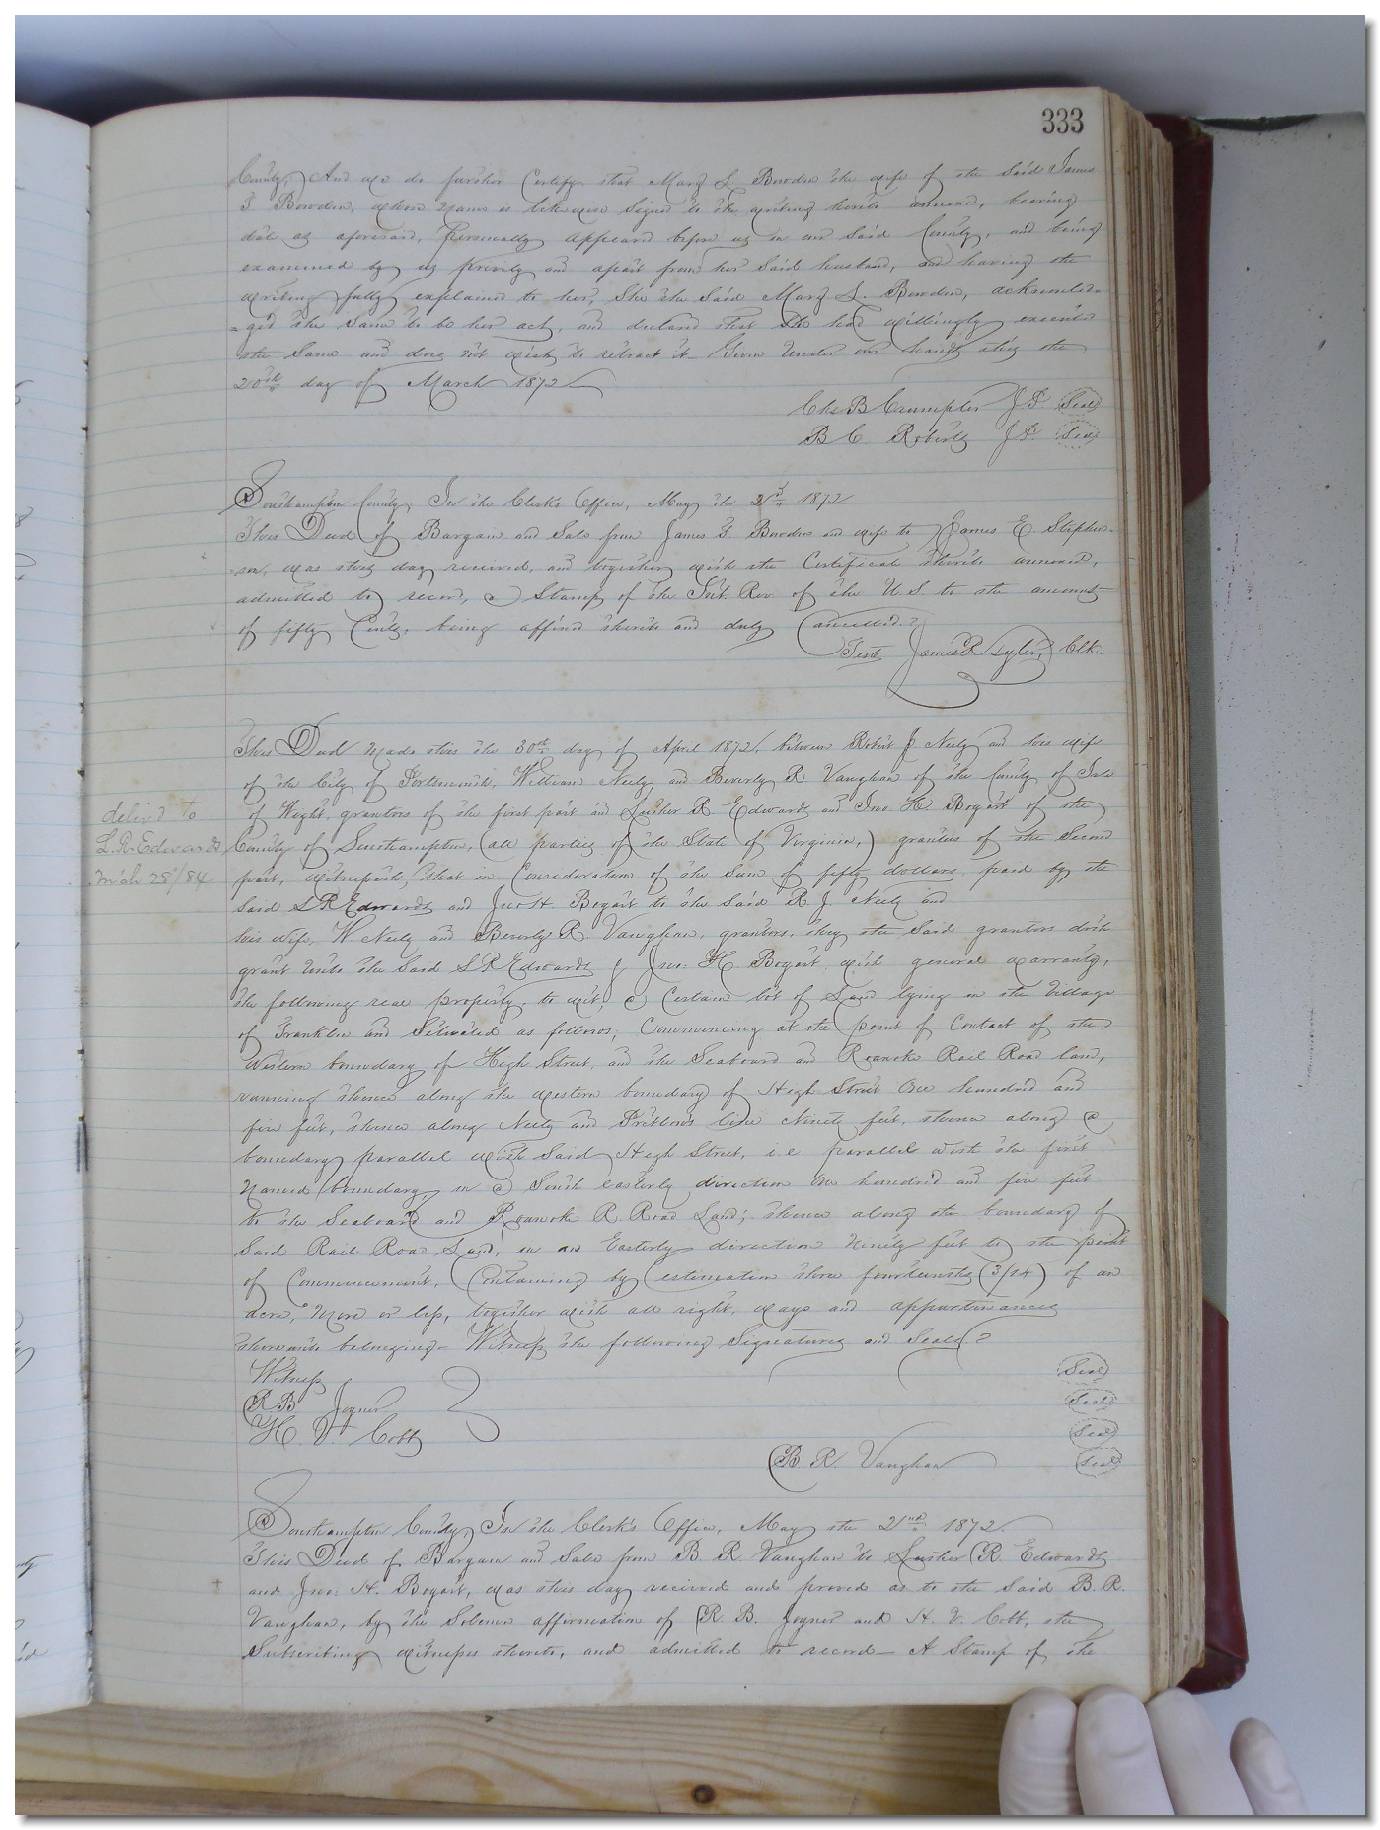 333
County, And we do further Certify that Mary L Bowden the wife of the said James
T Bowden, whose name is likewise signed to the writing hereto annexed, bearing
date as aforesaid, personally appeared before us in our said County, and being
examined by us privily and apart from her said husband, and having the
writing fully explained to her, She the said Mary L. Bowden, acknowled-
-ged the same to be her act, and declared that She had willingly executed
the same and does not wish to retract it. Given under our hands this the
20th day of March 1872
Chs B Crumpler J.P. Seal
B C Roberts J.P. Seal
Southampton County, In the Clerk's Office, May the 1872
This Deed of Bargain and Sale from James T. Bowden and wife to James E Stephen-
-son, was this day received, and together with the Certificate thereto annexed,
admitted to record, a Stamp of the Int. Rev of the U.S. to the amount
of fifty Cents, being affixed thereto and duly Cancelled.
Teste James R Tyler, Clk.
This Deed Made this the 30th day of April 1872, between Robert J Neely and his wife
of the City of Portsmouth, William Neely, and Beverly R. Vaughan of the County of Isle
of Wight, grantors of the first part and Luther R Edwards and Jno H. Bogart of the
County of Southampton, (all parties of the State of Virginia,) grantees of the Second
part, witnesseth, that in Consideration of the sum of fifty dollars, paid by the
said L R Edwards and Jno H. Bogart to the said R. J. Neely and
his wife, W Neely and Beverly R. Vaughan, grantors, they the said grantors doth
grant unto the said L R Edwards & Jno: H. Bogart, with general warranty,
the following real property, to wit, a Certain lot of Land lying in the Village
of Franklin and Situated as follows; Commencing at the point of Contact of the
Western boundary of High Street, and the Seaboard and Roanoke Rail Road land,
running thence along the western boundary of High Street One hundred and
five feet, thence along Neely and Pretlow's line Ninety feet, thence along a
boundary parallel with said High Street, i.e parallel with the first
Named boundary, in a South Easterly direction One hundred and five feet
to the Seaboard and Roanoke R. Road Land; thence along the boundary of
said Rail Road Land, in an Easterly direction Ninety feet to the point
of Commencement, Containing by estimation three fourteenths (3/14) of an
acre, More or less, together with all right, ways and appurtenances
thereunto belonging. Witness the following Signatures and Seals
Witness Seal
R B Joyner Seal
H. V. Cobb Seal
B. R. Vaughan Seal
deliv'd to
L.R. Edwards
Mch 28'/84
Southampton County, In the Clerk's Office, May the 21nd 1872.
This Deed of Bargain and Sale from B. R. Vaughan to Luther R. Edwards
and Jno: H. Bogart, was this day received and proved as to the said B. R.
Vaughan, by the Solemn affirmation of R. B. Joyner and H. V. Cobb, the
Subscribing witnesses thereto, and admitted to record— A Stamp of the